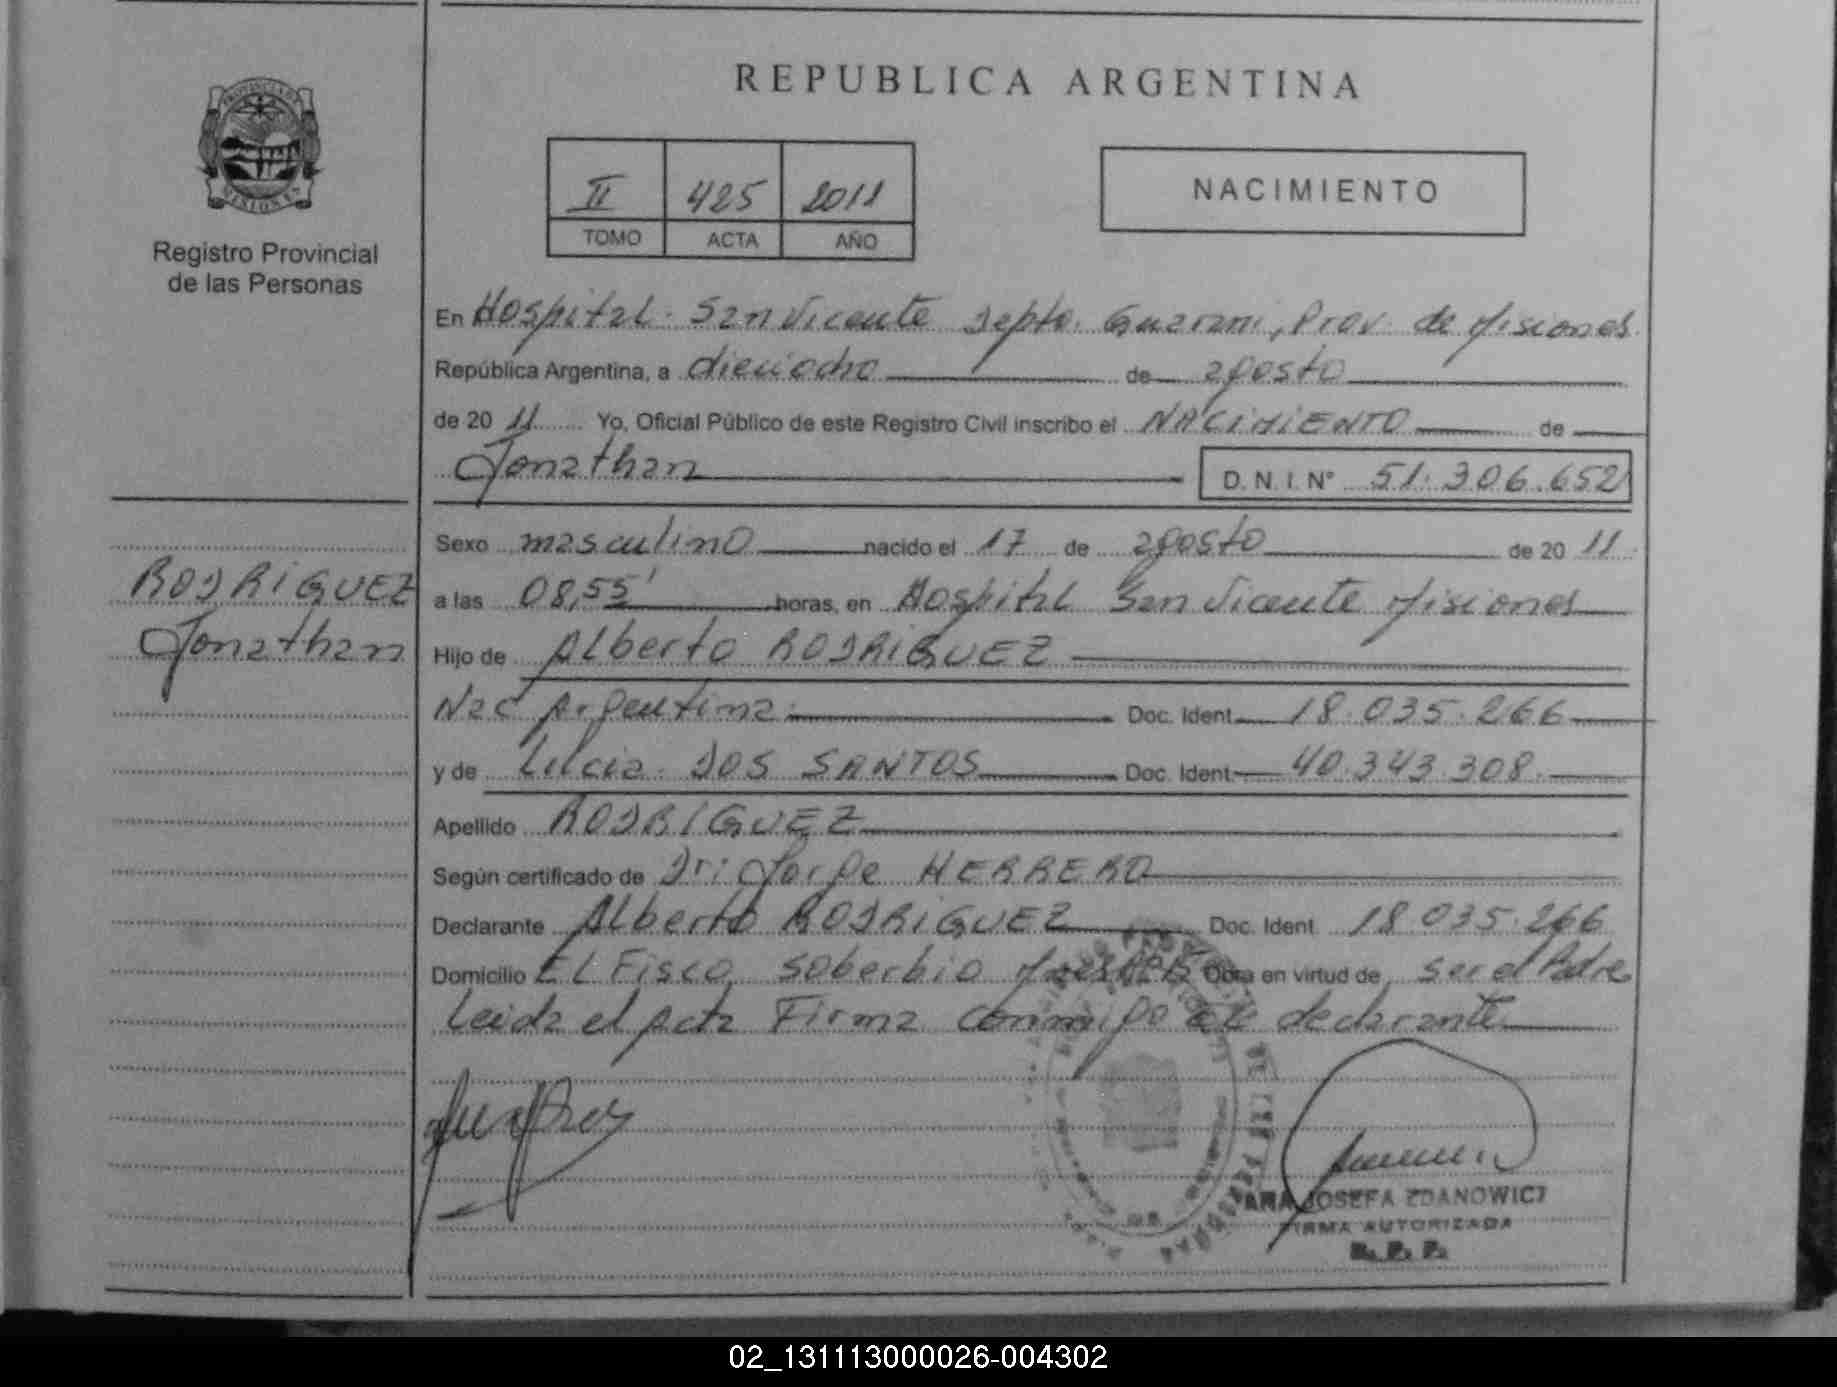 REPUBLICA ARGENTINA
PROVINCIA DE
MISIONES
Registro Provincial
de las Personas
II 425 2011
TOMO ACTA AÑO
NACIMIENTO
En Hospital San Vicente Depto. Guarani, Prov. de Misiones
República Argentina, a dieciocho de agosto
de 2011 Yo, Oficial Público de este Registro Civil inscribo el NACIMIENTO de
Jonathan D.N.I. Nº 51.306.652
Sexo masculino nacido el 17 de agosto de 2011
RODRIGUEZ
Jonathan
a las 08,55' horas, en Hospital San Vicente Misiones
Hijo de Alberto RODRIGUEZ
Nac Argentina Doc. Ident. 18.035.266
y de Lucia DOS SANTOS Doc. Ident. 40.343.308.
Apellido RODRIGUEZ
Según certificado de Dr: Jorge HERRERO
Declarante Alberto RODRIGUEZ Doc. Ident. 18.035.266
Domicilio El Fisco Soberbio Misiones Obra en virtud de ser el Padre
Leida el acta Firma conmigo el declarante
ANA JOSEFA ZDANOWICZ
FIRMA AUTORIZADA
R. P. P.
02_131113000026-004302